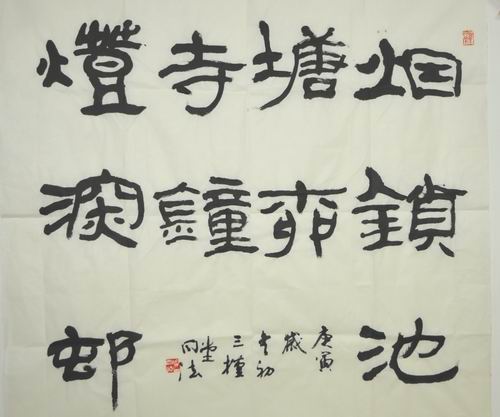 烟鎖池
塘柳
燈深邨
寺鐘
庚寅
歲
冬初
三
堂
同法